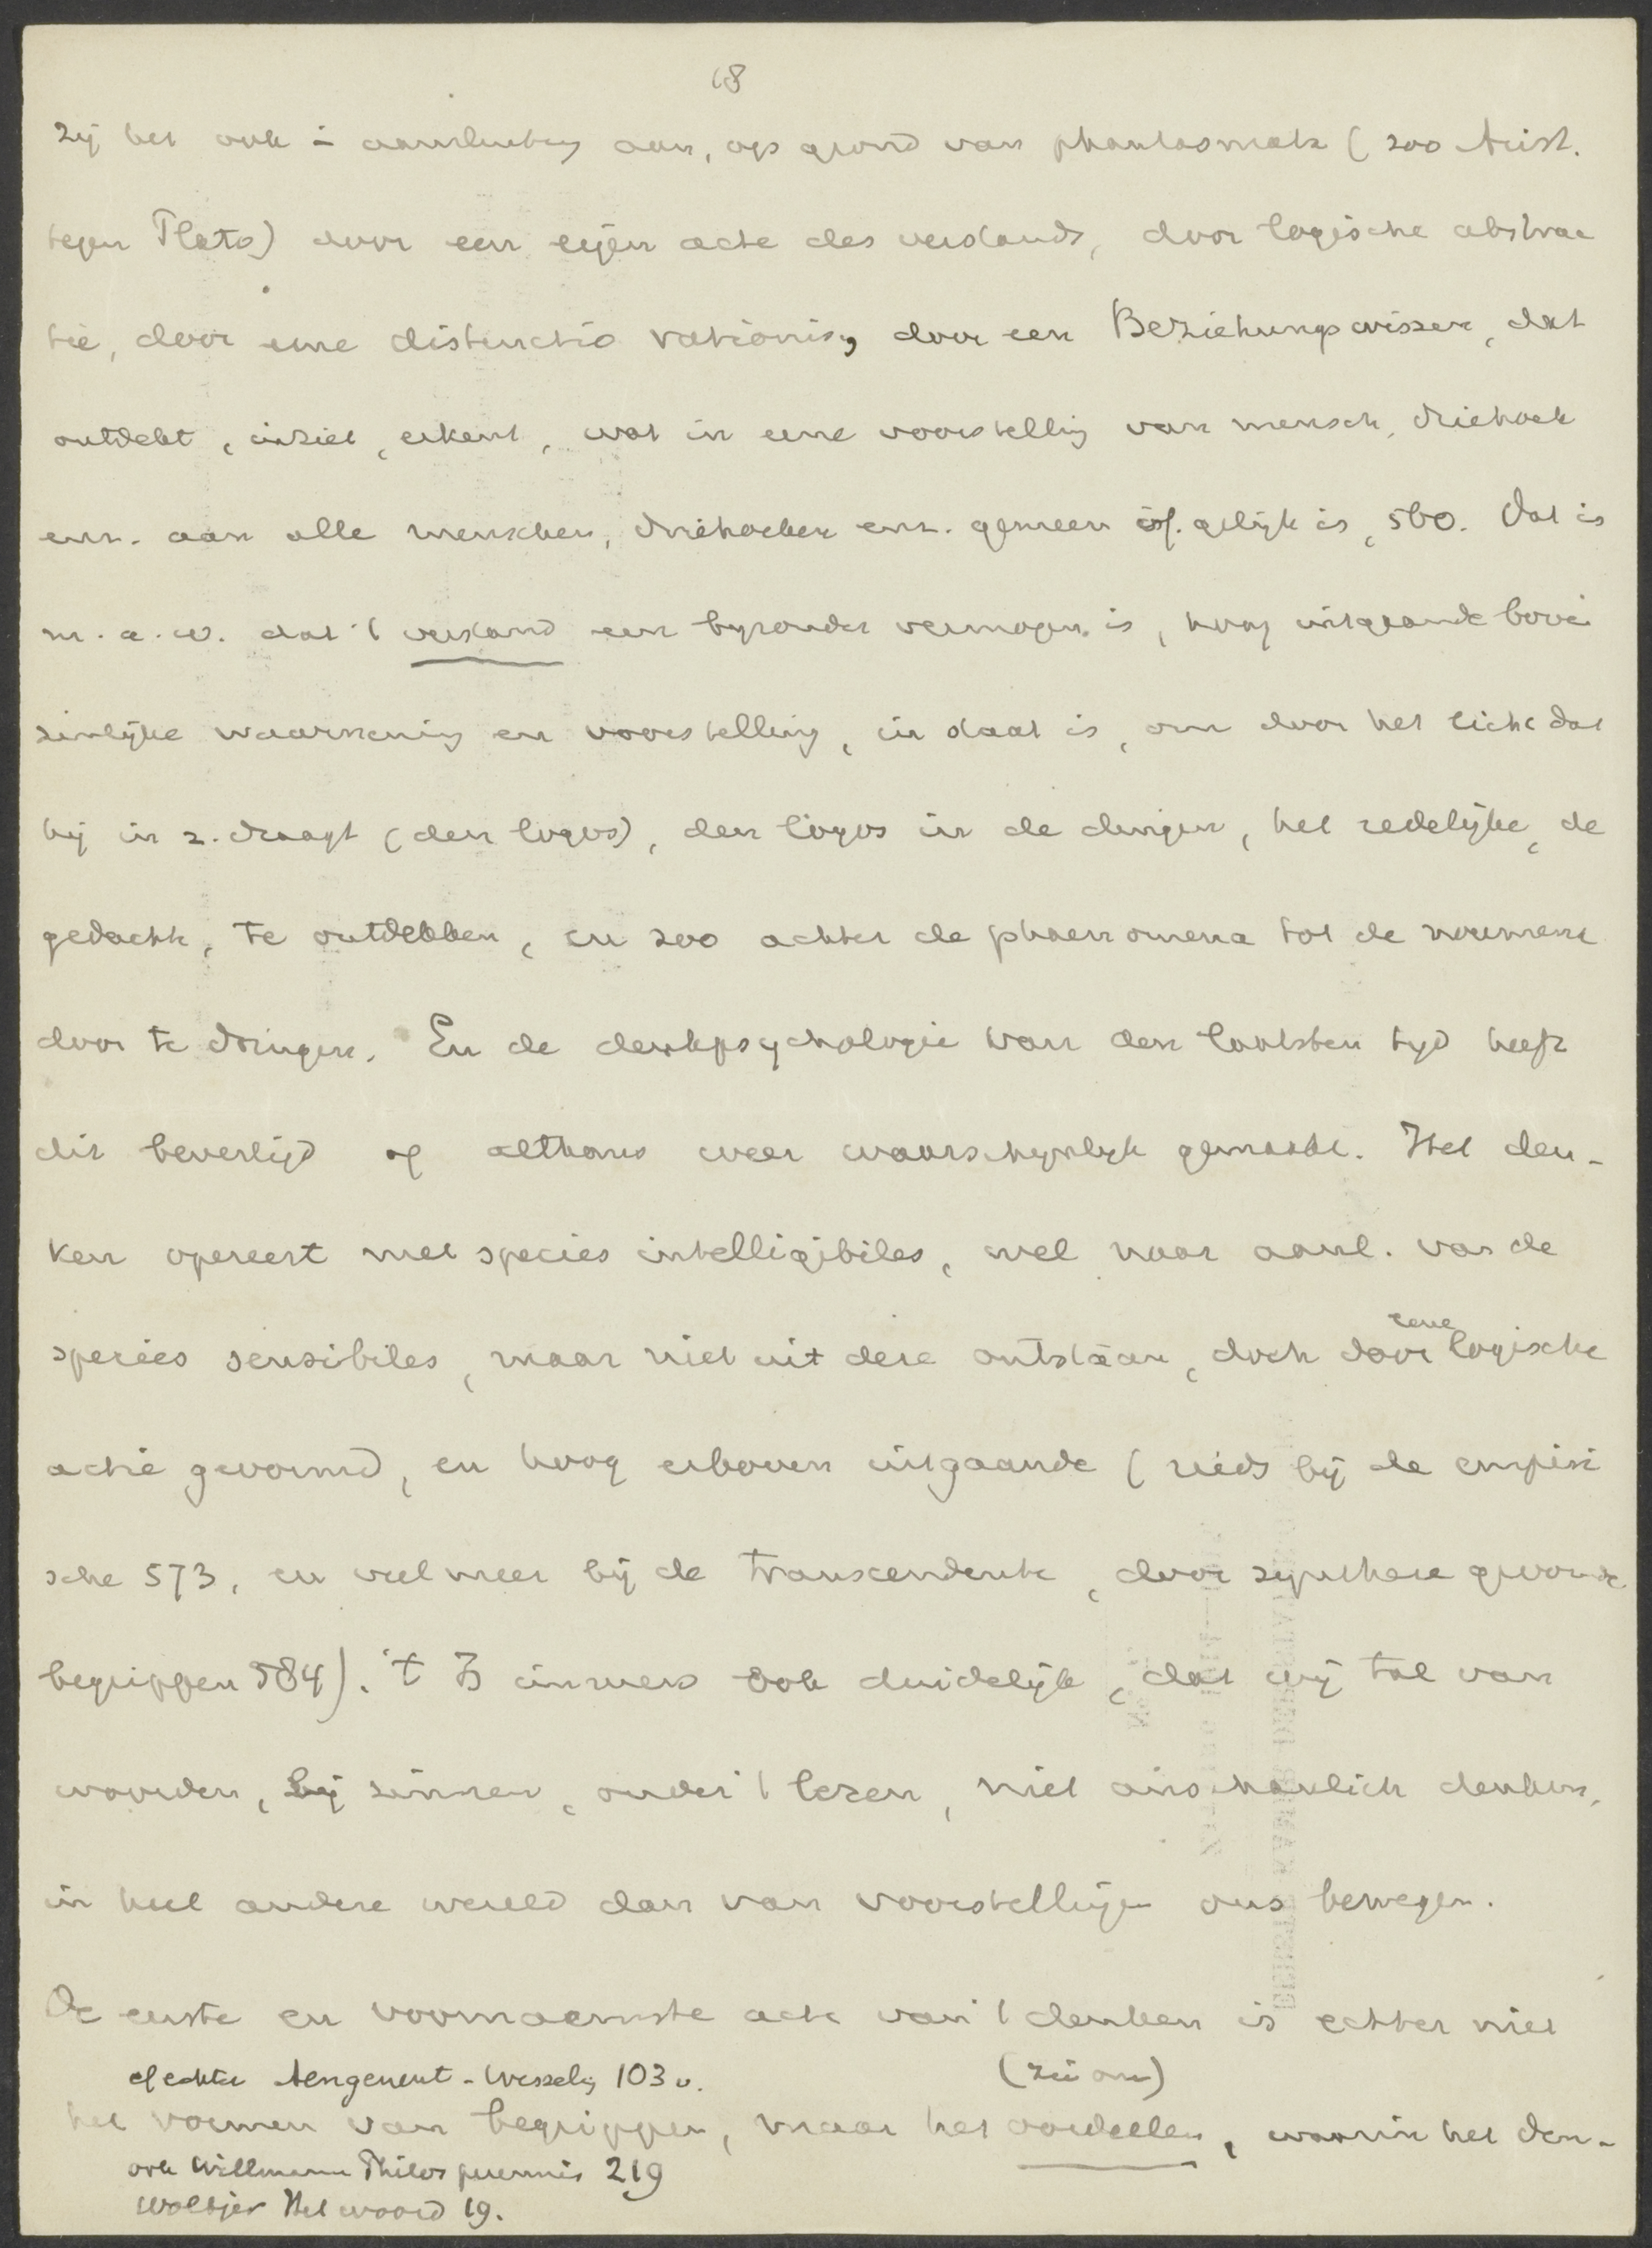 18
zij het ook in aansluiting aan, op grond van phantasmata (zoo Arist.
tegen Plato) door een eigen acte des verstands, door logische abstrac
tie, door eene distinctio rationis, door een Beziehungswissen, dat
ontdekt, inziet, erkent, wat in eene voorstelling van mensch, driehoek
enz. aan alle menschen, driehoeken enz. gemeen of. gelijk is, 560. Dat is
m.a.w. dat 't verstand een byzonder vermogen is, hoog uitgaande boven
zinlijke waarneming en voorstelling, in staat is, om door het licht dat
hij in z. draagt (den logos), den logos in de dingen, het redelijke, de
gedachte, te ontdekken, en zoo achter de phaenomena tot de noumena
door te dringen. En de denkpsychologie van den laatsten tyd heeft
dit bevestigd of althans weer waarschynlyk gemaakt. Het den-
ken opereert met species intelligibiles, wel naar aanl. van de
species sensibiles, maar niet uit deze ontstaan, doch door eene logische
actie gevormd, en hoog erboven uitgaande (reeds bij de empiri
sche 573, en veel meer bij de transcendente, door synthese gevormde
begrippen 584). 't Is immers ook duidelijk, dat wij tal van
woorden, bij zinnen, onder 't lezen, niet anschaulich denken,
in heel andere wereld dan van voorstellingen ons bewegen.
De eerste en voornaamste acte van 't denken is echter niet
cf echter Aengenent - Wesselij 103 v. (zie om)
het vormen van begrippen, maar het oordeelen, waarin het den-
ook Willmann Philos perennis 219
Woltjer Het woord 19.